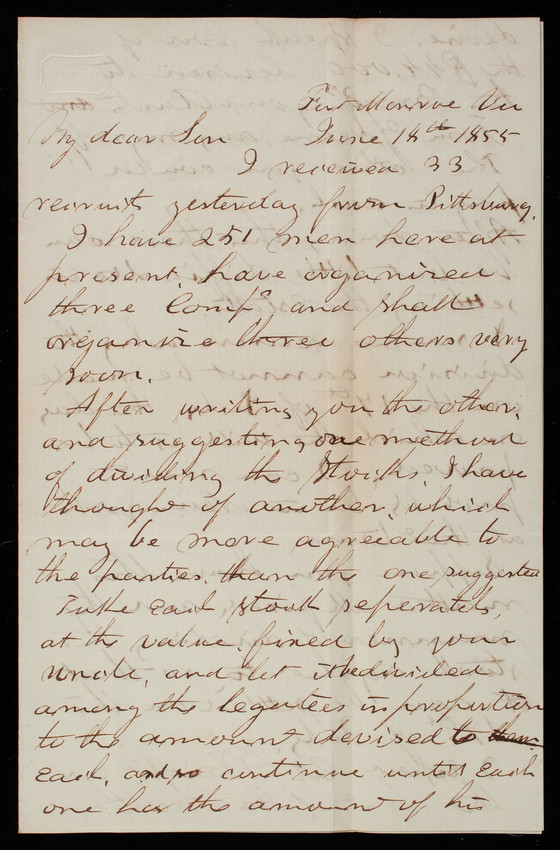 Fort Monroe Va
My dear Son June 18th 1855
I received 33
recruits yesterday from Pittsburg.
I have 251 men here at
present, have organized
three Comps and shall
organize three others very
soon.
After writing you the other,
and suggesting one method
of dividing the Stocks, I have
thought of another, which
may be more agreeable to
the parties, than the one suggested
Take Each Stock seperately,
at the value fixed by your
Uncle, and let it be divided
among the legatees in proportion
to the amount devised to them
Each, and so continue until Each
one has the amount of his